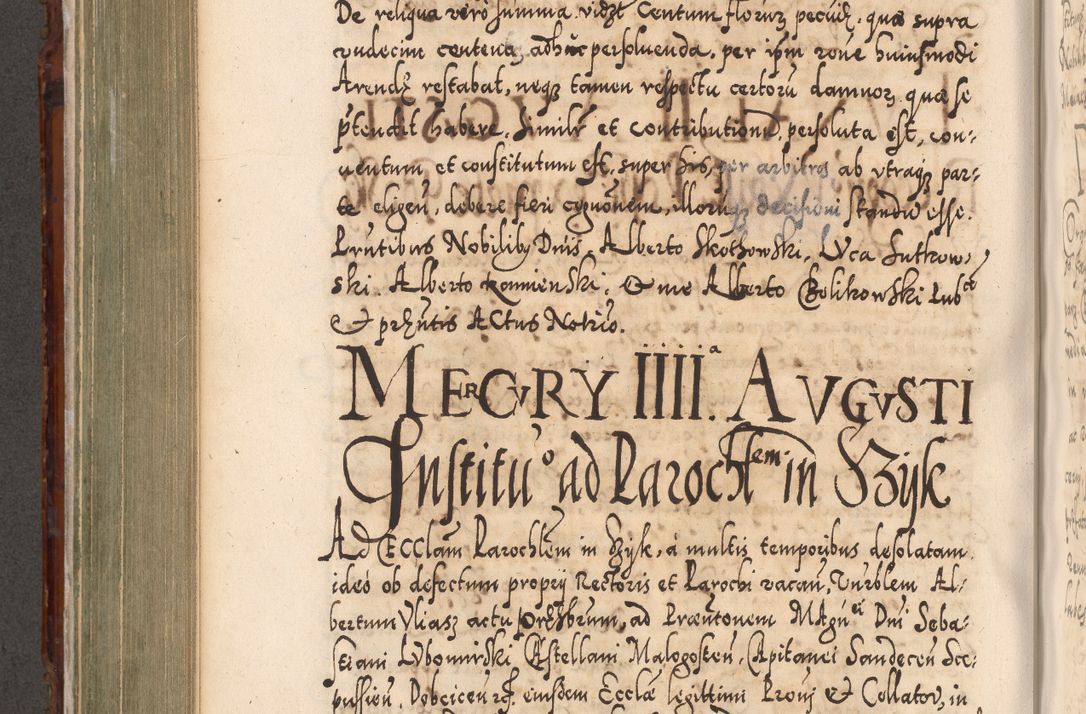 De reliqua verò summa, vidzt Centum florenorz pecuię, quæ supra
vndecim centena, adhuc persoluenda, per ipm rône huiusmodi
Arendę restabat, neqz tamen respectu certorū damnorz, quæ se
ptendit habere, similr et contributionū, persoluta est, con-
uentum, et constitutum est, super his, per arbitros ab vtraqz par-
te eligen, debere fieri cognonem, illorumqz decisioni standū esse.
Prntibus Nobilibz Dnis, Alberto Skotowski, Luca Sutkow-
ski. Alberto Kamienski, & me Alberto Bolikowski Pubco
& prsentis Actus Notrio.
MERCVRY IIIIa. AVGVSTI
Institūo ad Parochlem in Szyk
Ad Ecclam Parochlem in Szyk, à multis temporibus desolatam
ideò ob defectum proprij Rectoris et Parochi vacan, Vnrblem Al-
bertum Vliasz actu prsbrum, ad Præntonem MAgnci Dni Seba-
stiani Lubomirski, CAstellani Malogosten, CApitanei Sandecen Sce-
pusien, Dobcicen rz, eiusdem Ecclæ legittimi Proui & Collator, in